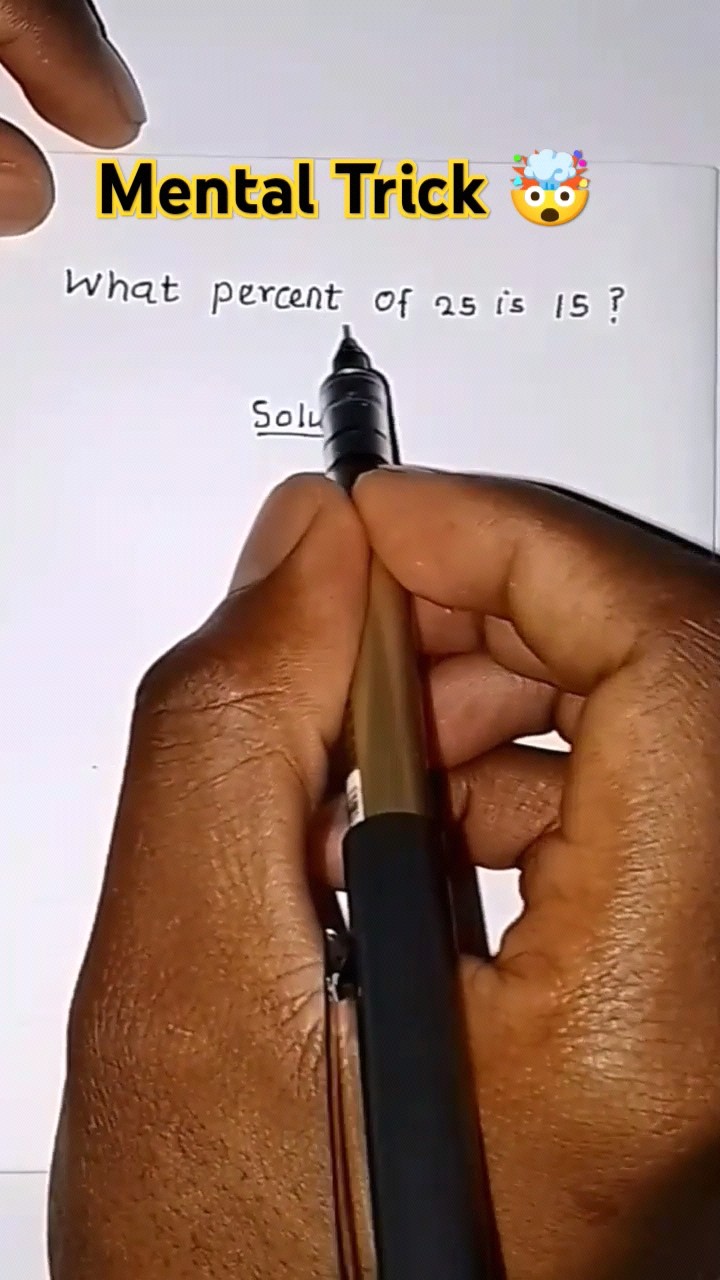 Mental Trick 🤯
What percent of 25 is 15 ?